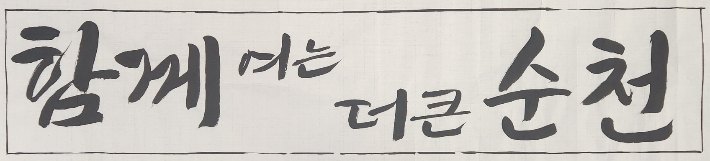 함께 여는 더 큰 순천